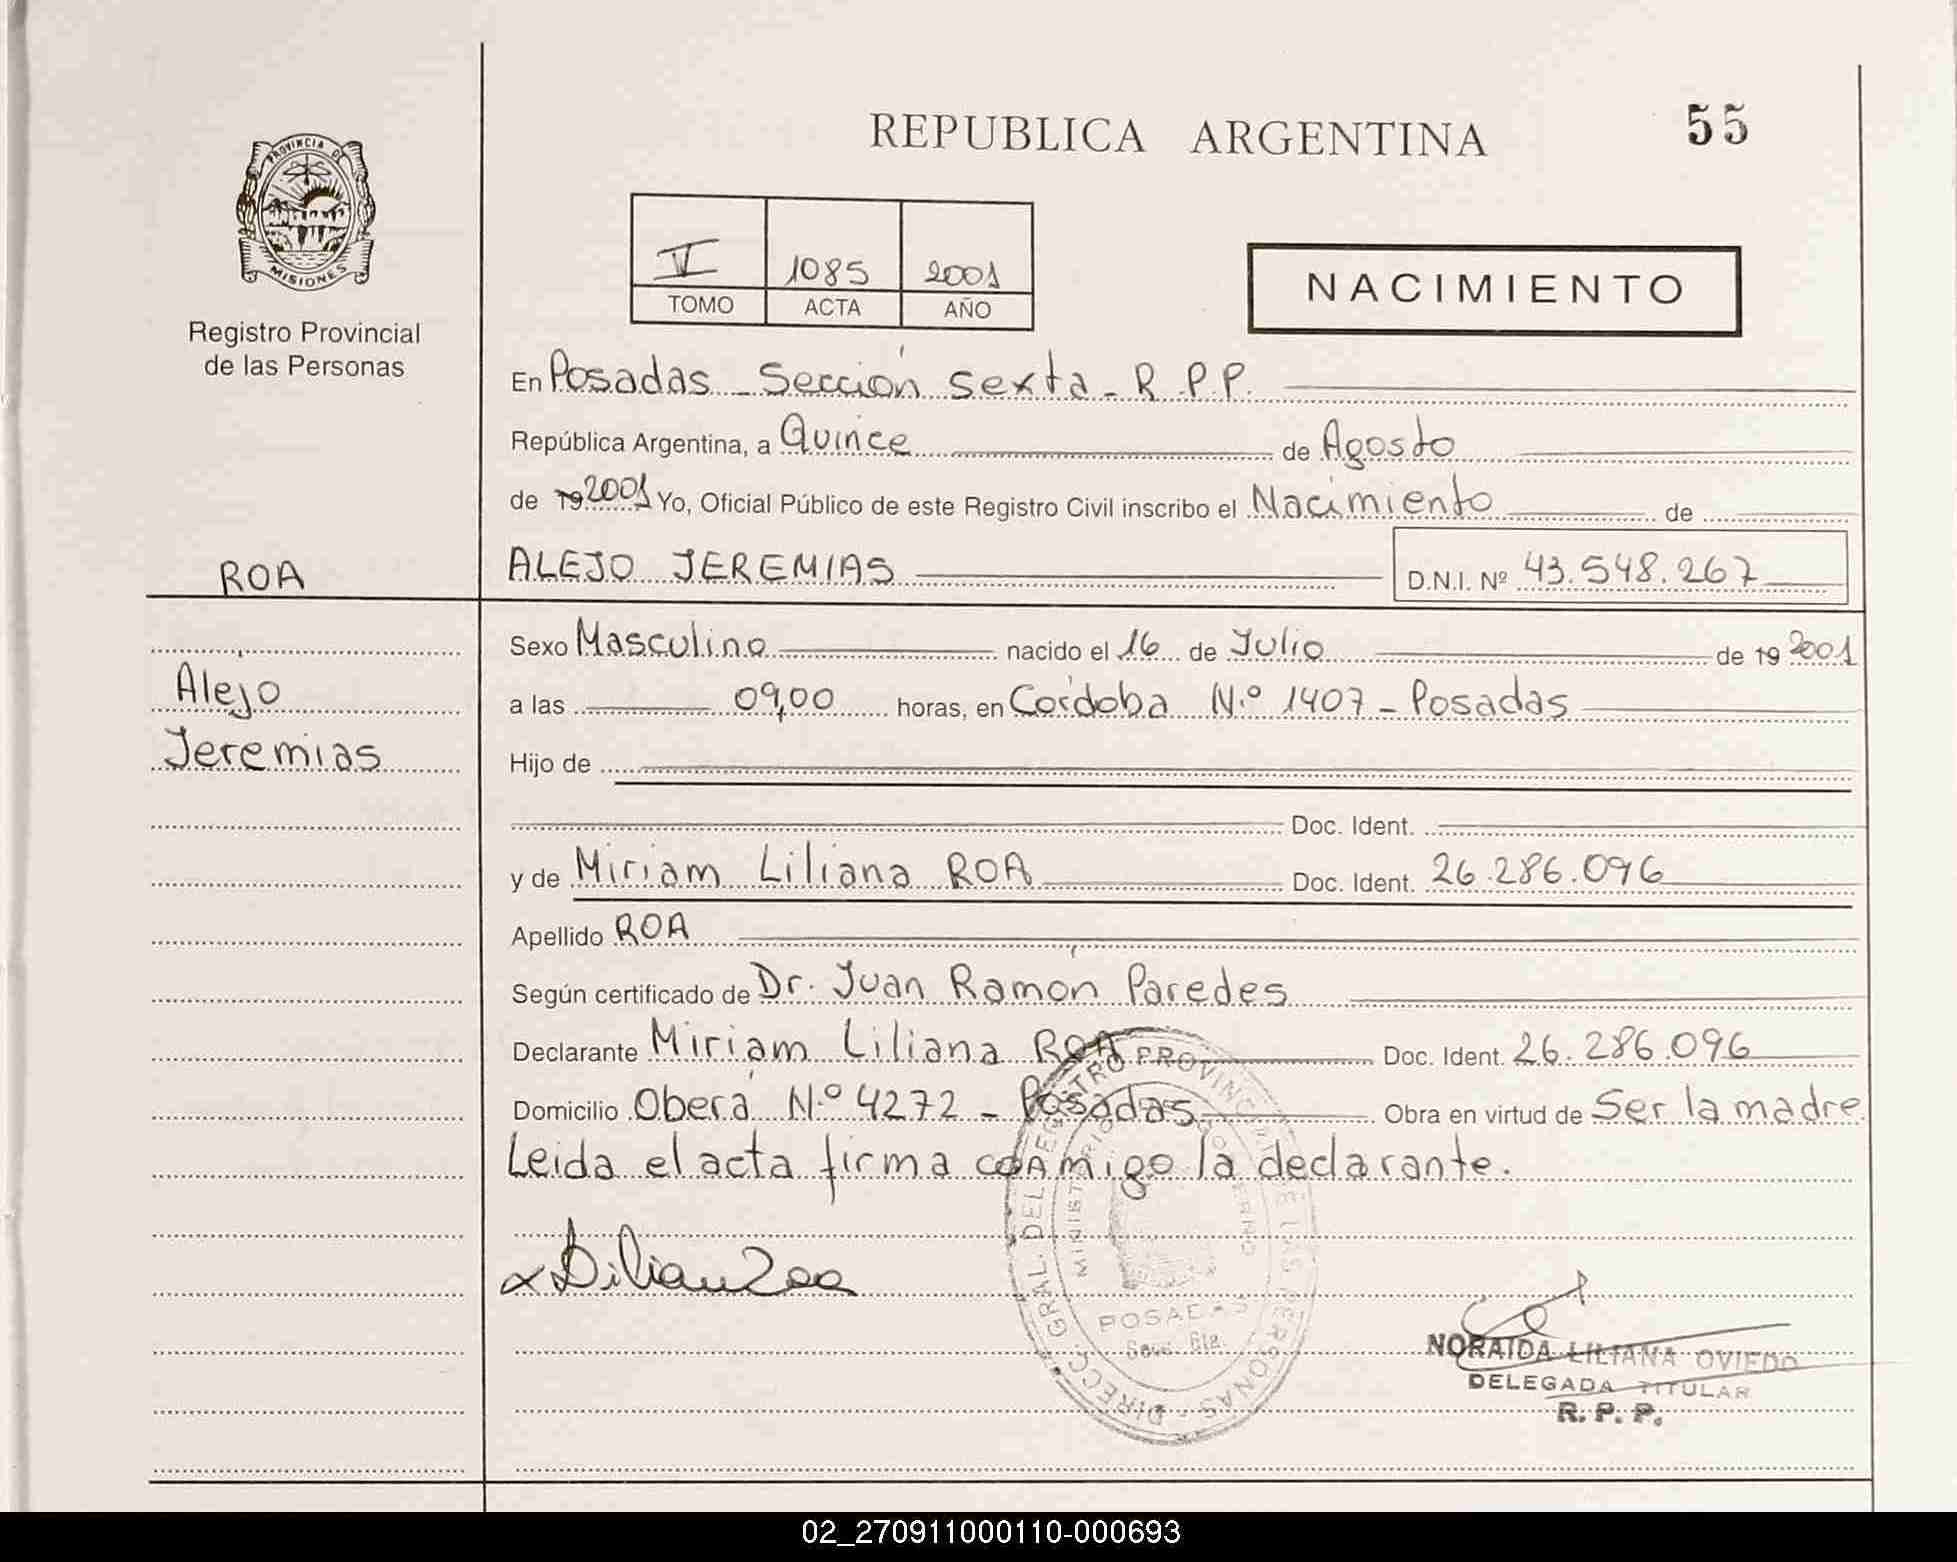 REPUBLICA ARGENTINA
55
PROVINCIA DE
MISIONES
Registro Provincial
de las Personas
V 1085 2001
TOMO ACTA AÑO
NACIMIENTO
En Posadas - Sección Sexta - R.P.P.
República Argentina, a Quince de Agosto
de 19 2001 Yo, Oficial Público de este Registro Civil inscribo el Nacimiento de
ROA
ALEJO JEREMIAS D.N.I. Nº 43.548.267
Sexo Masculino nacido el 16 de Julio de 19 2001
Alejo
a las 09,00 horas, en Córdoba N.º 1407 - Posadas
Jeremias
Hijo de
Doc. Ident.
y de Miriam Liliana ROA Doc. Ident. 26.286.096
Apellido ROA
Según certificado de Dr. Juan Ramón Paredes
Declarante Miriam Liliana ROA Doc. Ident. 26.286.096
Domicilio Oberá N.º 4272 - Posadas Obra en virtud de Ser la madre.
Leida el acta firma conmigo la declarante.
DIRECC. GRAL. DEL REGISTRO PROVINCIAL DE LAS PERSONAS
MINISTERIO GOBIERNO
POSADAS
Secc. 6ta.
NORAIDA LILIANA OVIEDO
DELEGADA TITULAR
R. P. P.
02_270911000110-000693